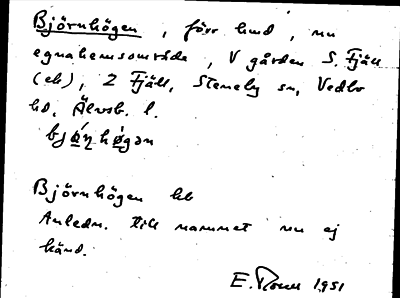 Björnhögen, förr hmd, nu
egnahemsområde, V gården S. Fjäll
(eb), 2 Fjäll, Steneby sn, Vedbo
hd, Älvsb. l.
bjǿŋhǿgən
Björnhögen hb
Anledn. till namnet nu ej
känd.
E. 1951